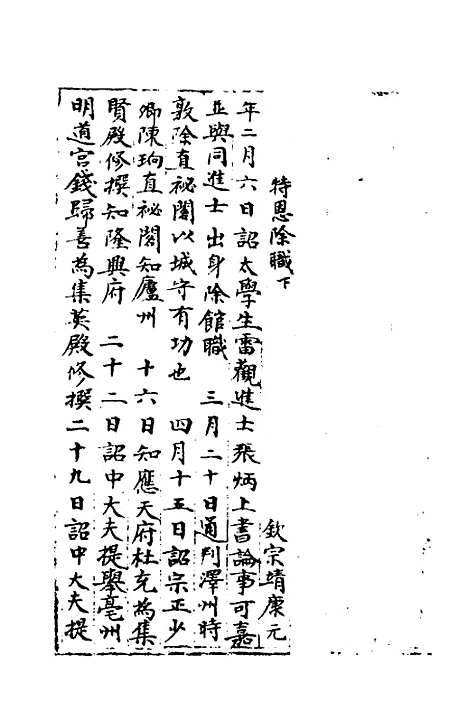 特恩除職下
欽宗靖康元
年二月六日詔太學生雷觀進士張炳上書論事可嘉
並與同進士出身除館職　三月二十日通判澤州時
敦除直祕閣以城守有功也　四月十五日詔宗正少
卿陳㘦直祕閣知廬州　十六日知應天府杜充為集
賢殿修撰知隆興府　二十二日詔中大夫提舉亳州
明道宮錢歸善為集英殿修撰二十九日詔中大夫提